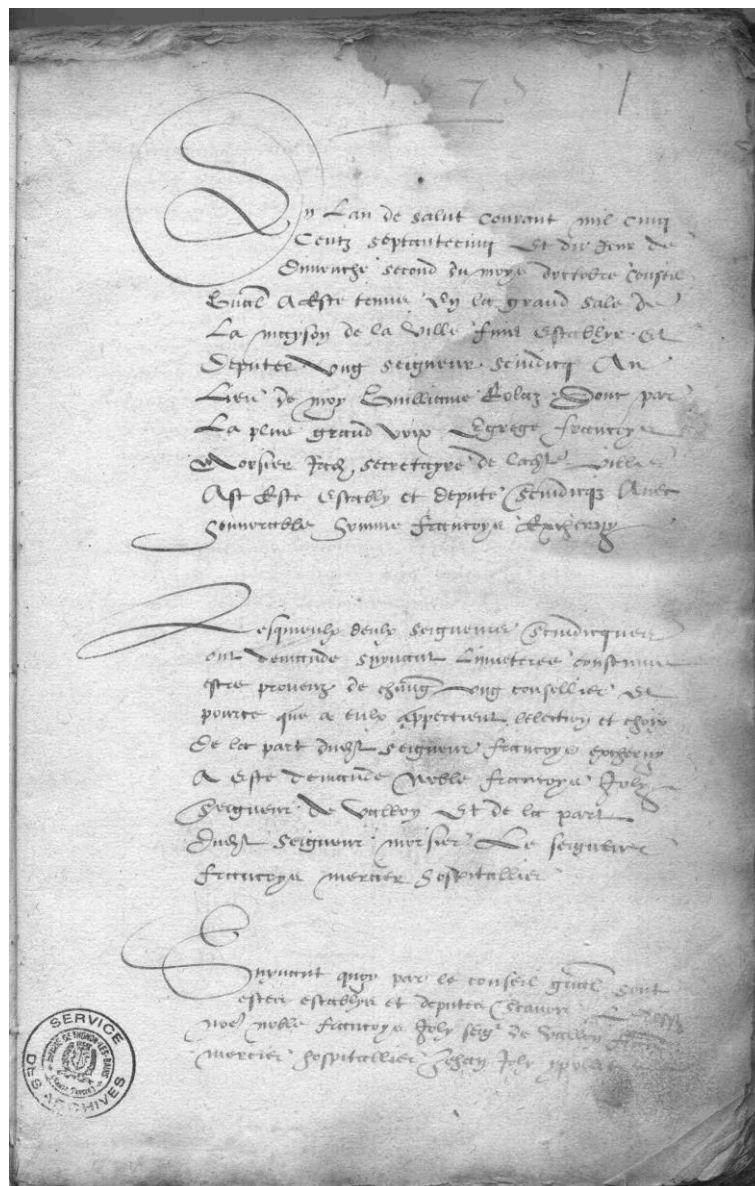 1575 1
En Lan de salut Courant mil cinq
Centz septantecinq Et dix Jour de
dimenche second du moys doctobre Conseil
A Este tenuz En la grand sale de
La mayson de la Ville Establyr Et
Deputer Ung Seigneur Scindicq Au
Lieu de moy Guilliaume Rolaz Dont par
La plus grand voix Egrege francoys
Morsier secretayre de ville
Ast Este Estably et depute Scindicqz Avec
honnorable homme francoys
Lesquieulx deulx seigneurs Scindicques
ont demande suyvant
estre prouveuz de Ung consellier Et
pource que a eulx Appertient lelection et choys
De la part dudit Seigneur francoys
A Este demande Noble francoys Joly
Seigneur De Valloy Et de la part
dudit Seigneur morsier Le seigneur
francoys mercier hospitallier
Suyvant quoy par le conseil gnal sont
estes establys et deputes Scavoir
noble francoys Joly seigr de Valloy
mercier hospitallier Jehan Joly
SERVICE DES ARCHIVES